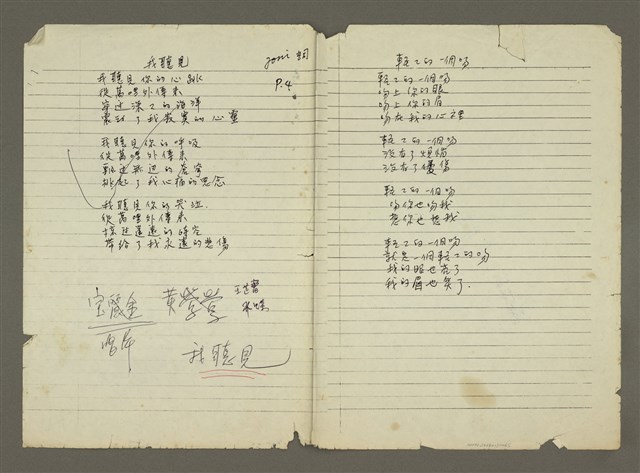 我聽見
我聽見你的心跳
從萬哩外傳來
穿過深深的海洋
震動了我寂寞的心靈
我聽見你的呼吸
從萬哩外傳來
飄過飄過的
挑起了我心痛的思念
我聽見你的哭泣
從萬哩外傳來
掠過遙遠的時空
帶給了我永遠的悲傷
P.4
黃鶯鶯
我聽見
輕々的一個吻
輕々的一個吻
吻上你的眼
吻上你的眉
吻在我的心裡
輕々的一個吻
沒有了煩惱
沒有了憂傷
輕々的一個吻
吻你也吻我
想你也想我
輕々的一個吻
就是一個輕々的吻
我的眼也亮了
我的眉也笑了.